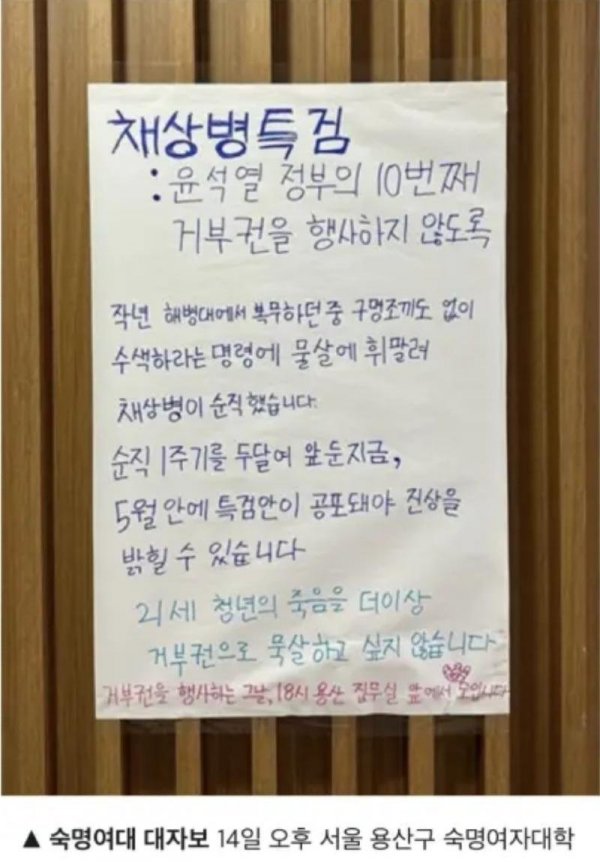 채상병특검
: 윤석열 정부의 10번째
거부권을 행사하지 않도록
작년 해병대에서 복무하던 중 구명조끼도 없이
수색하라는 명령에 물살에 휘말려
채상병이 순직했습니다.
순직 1주기를 두달여 앞둔지금,
5월 안에 특검안이 공포돼야 진상을
밝힐 수 있습니다
21세 청년의 죽음을 더이상
거부권으로 묵살하고 싶지 않습니다
거부권을 행사하는 그날, 18시 용산 집무실 앞에서 모입니다
▲ 숙명여대 대자보 14일 오후 서울 용산구 숙명여자대학